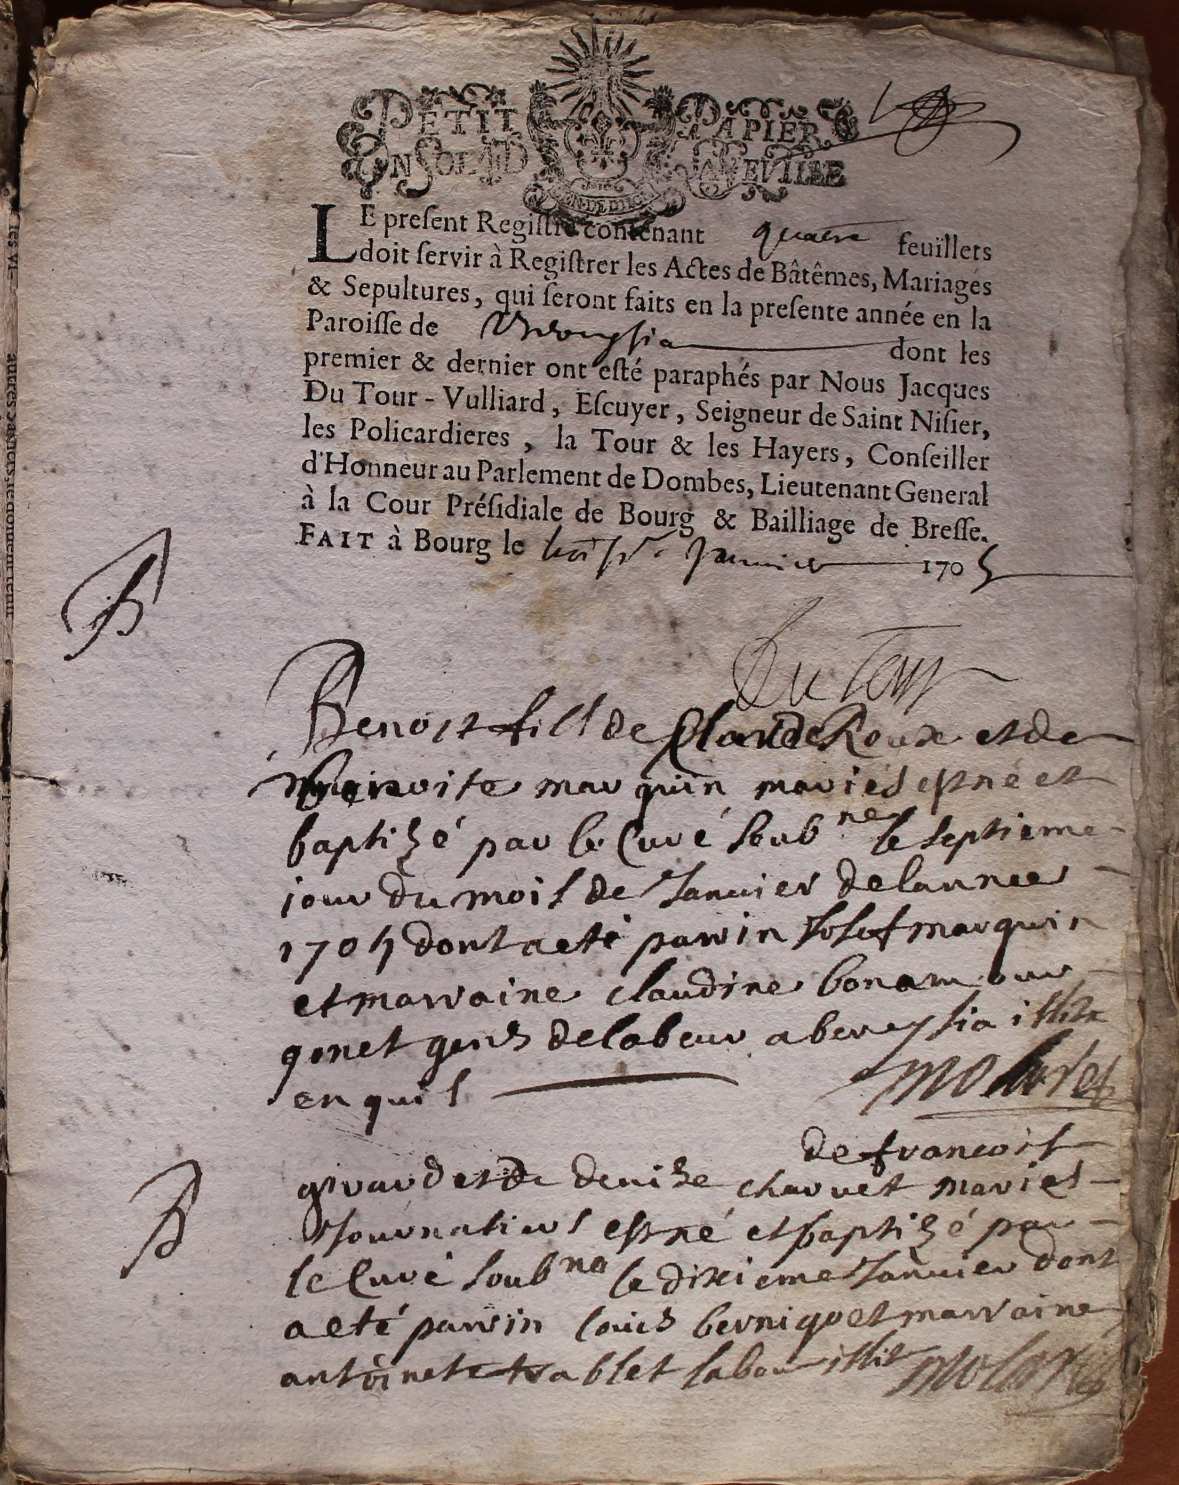 PETIT PAPIER
UN SOL LA FEUILLE
GEN. DE DIION
LE preſent Regiſtre contenant quatre feuillets
doit ſervir à Regiſtrer les Actes de Bâtêmes, Mariages
& Sepultures, qui ſeront faits en la preſente année en la
Paroiſſe de dont les
premier & dernier ont eſté paraphés par Nous Jacques
Du Tour-Vulliard, Eſcuyer, Seigneur de Saint Niſier,
les Policardieres, la Tour & les Hayers, Conſeiller
d'Honneur au Parlement de Dombes, Lieutenant General
à la Cour Préſidiale de Bourg & Bailliage de Breſſe.
FAIT à Bourg le Janvier 1705
Du Tour
B
Benoist fils de Claude Roux et de
Benoite marquin mariés est né et
baptizé par le Curé soubne le septieme
jour du mois de Janvier de lannee
1705 dont a eté parrin Josef marquin
et marraine claudine bonamour
gens de labeur a illite
enquis
molaret
B
de francois
girard et de denize charvet mariés
Journaliers est né et baptizé par
le Curé soubne le dixieme Janvier dont
a eté parrin louis bernigo et marraine
antoinete trablet illit molaret